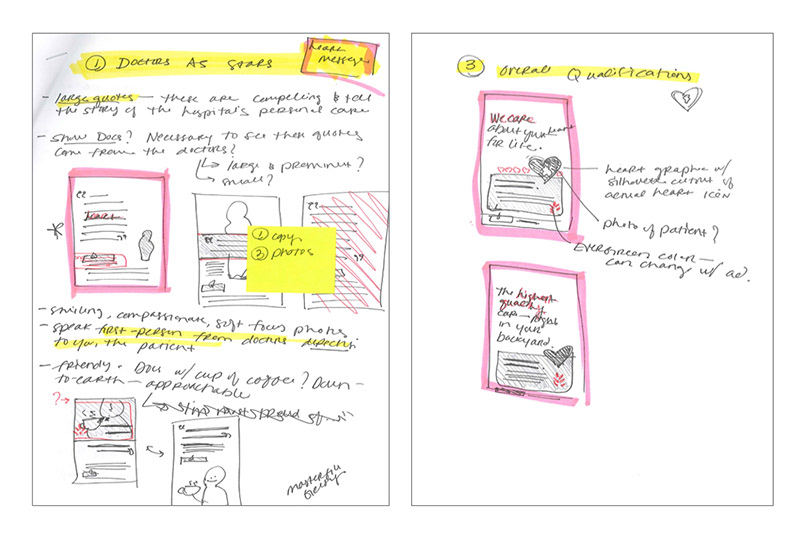 ① DOCTORS AS STARS
heart message
— large quotes — these are compelling & tell
the story of the hospital's personal care
— Show Docs? Necessary to see these quotes
come from the doctors?
↳ large & prominent?
↳ small?
heart
① copy
② photos
— smiling, compassionate, soft focus photos
— speak first-person from doctors directly
to you, the patient
— friendly. Docs w/ cup of coffee? Down-
to-earth — approachable
?→
③ Overall Qualifications
We care
about your heart
for life.
heart graphic w/
silhouette cutout of
actual heart icon
photo of patient?
Evergreen color —
can change w/ ad.
the highest
quality
care — right
in your
backyard.